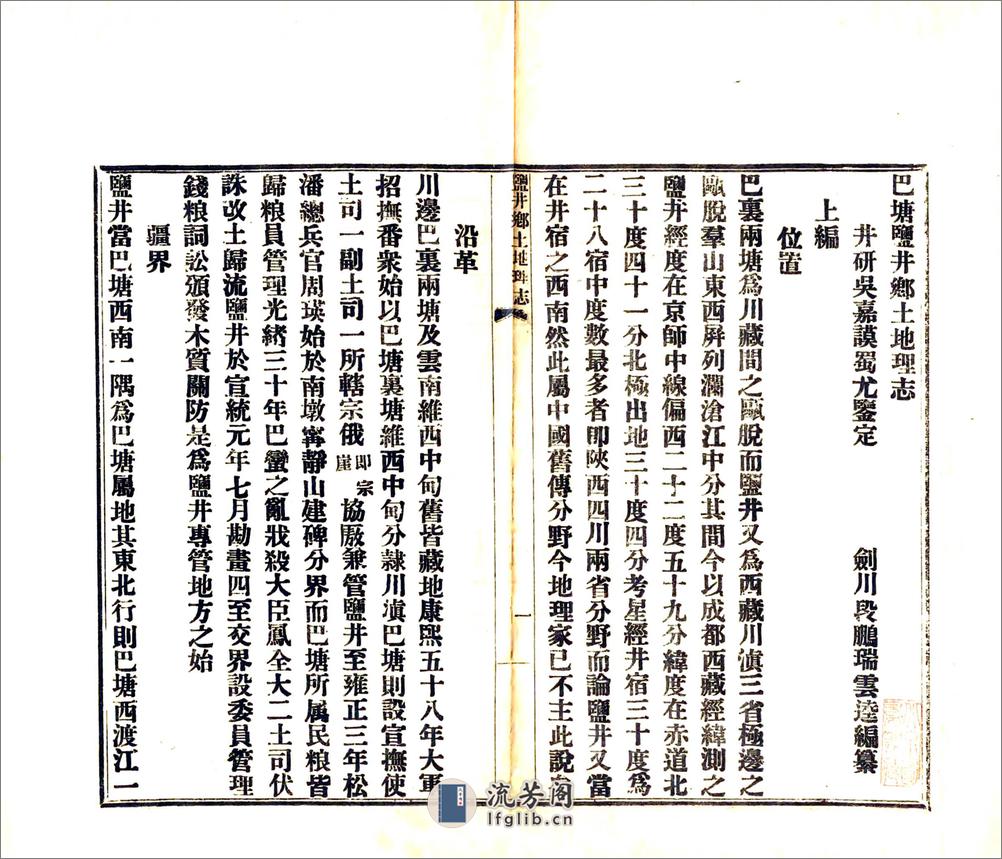 巴塘鹽井鄉土地理志
井研吳嘉謨蜀尤鑒定 劍川段鵬瑞雲逵編纂
上編
位置
巴裏兩塘爲川藏間之甌脫而鹽井又爲西藏川滇三省極邊之
甌脫羣山東西屏列瀾滄江中分其間今以成都西藏經緯測之
鹽井經度在京師中線偏西二十二度五十九分緯度在赤道北
三十度四十一分北極出地三十度四分考星經井宿三十度爲
二十八宿中度數最多者即陝西四川兩省分野而論鹽井又當
在井宿之西南然此屬中國舊傳分野今地理家已不主此說
鹽井鄉土地理志
一
沿革
川邊巴裏兩塘及雲南維西中甸舊皆藏地康熙五十八年大軍
招撫番衆始以巴塘裏塘維西中甸分隸川滇巴塘則設宣撫使
土司一副土司一所轄宗俄即宗崖協廒兼管鹽井至雍正三年松
潘總兵官周瑛始於南墩寧靜山建碑分界而巴塘所属民粮皆
歸粮員管理光緒三十年巴蠻之亂戕殺大臣鳳全大二土司伏
誅改土歸流鹽井於宣統元年七月勘畫四至交界設委員管理
錢粮詞訟頒發木質關防是爲鹽井專管地方之始
疆界
鹽井當巴塘西南一隅爲巴塘屬地其東北行則巴塘西渡江一
流芳阁
lfglib.cn